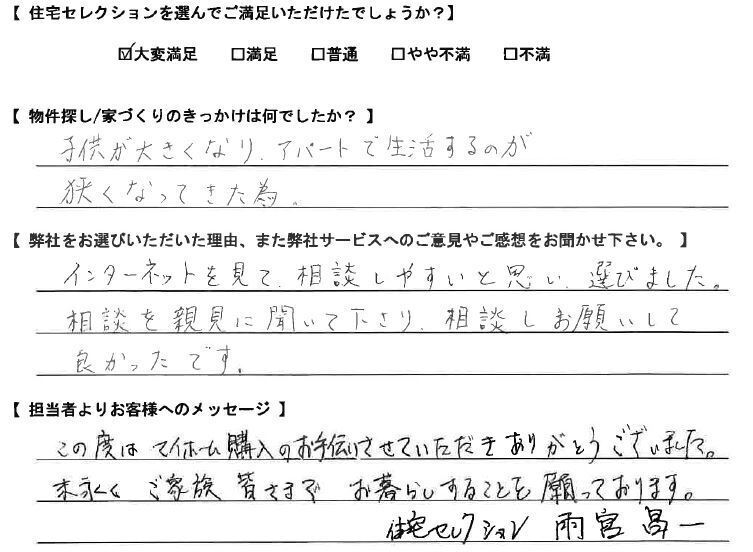 【 住宅セレクションを選んでご満足いただけたでしょうか？】
☑大変満足 □満足 □普通 □やや不満 □不満
【 物件探し/家づくりのきっかけは何でしたか？ 】
子供が大きくなり、アパートで生活するのが
狭くなってきた為。
【 弊社をお選びいただいた理由、また弊社サービスへのご意見やご感想をお聞かせ下さい。 】
インターネットを見て、相談しやすいと思い、選びました。
相談を親見に聞いて下さり、相談しお願いして
良かったです。
【 担当者よりお客様へのメッセージ 】
この度はマイホーム購入のお手伝いさせていただきありがとうございました。
末永くご家族皆さまでお暮らしすることを願っております。
住宅セレクション 雨宮昌一